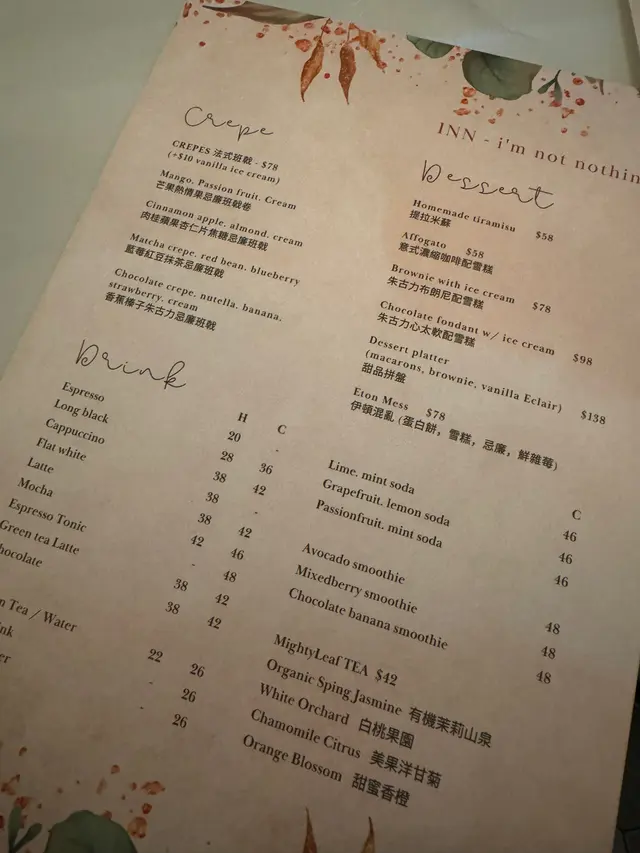 INN - i'm not nothin
Crepe
CREPES 法式班戟 - $78
(+$10 vanilla ice cream)
Mango, Passion fruit, Cream
芒果熱情果忌廉班戟卷
Cinnamon apple, almond, cream
肉桂蘋果杏仁片焦糖忌廉班戟
Matcha crepe, red bean, blueberry
藍莓紅豆抹茶忌廉班戟
Chocolate crepe, nutella, banana,
strawberry, cream
香蕉榛子朱古力忌廉班戟
Dessert
Homemade tiramisu $58
提拉米蘇
Affogato $58
意式濃縮咖啡配雪糕
Brownie with ice cream $78
朱古力布朗尼配雪糕
Chocolate fondant w/ ice cream $98
朱古力心太軟配雪糕
Dessert platter
(macarons, brownie, vanilla Eclair) $138
甜品拼盤
Eton Mess $78
伊頓混亂 (蛋白餅, 雪糕, 忌廉, 鮮雜莓)
Drink
H C
Espresso 20 -
Long black 28 36
Cappuccino 38 42
Flat white 38 -
Latte 38 42
Mocha 42 46
Espresso Tonic - 48
Green tea Latte 38 42
hocolate 38 42
n Tea / Water 22 26
nk - 26
er - 26
C
Lime, mint soda 46
Grapefruit, lemon soda 46
Passionfruit, mint soda 46
Avocado smoothie 48
Mixedberry smoothie 48
Chocolate banana smoothie 48
MightyLeaf TEA $42
Organic Sping Jasmine 有機茉莉山泉
White Orchard 白桃果園
Chamomile Citrus 美果洋甘菊
Orange Blossom 甜蜜香橙